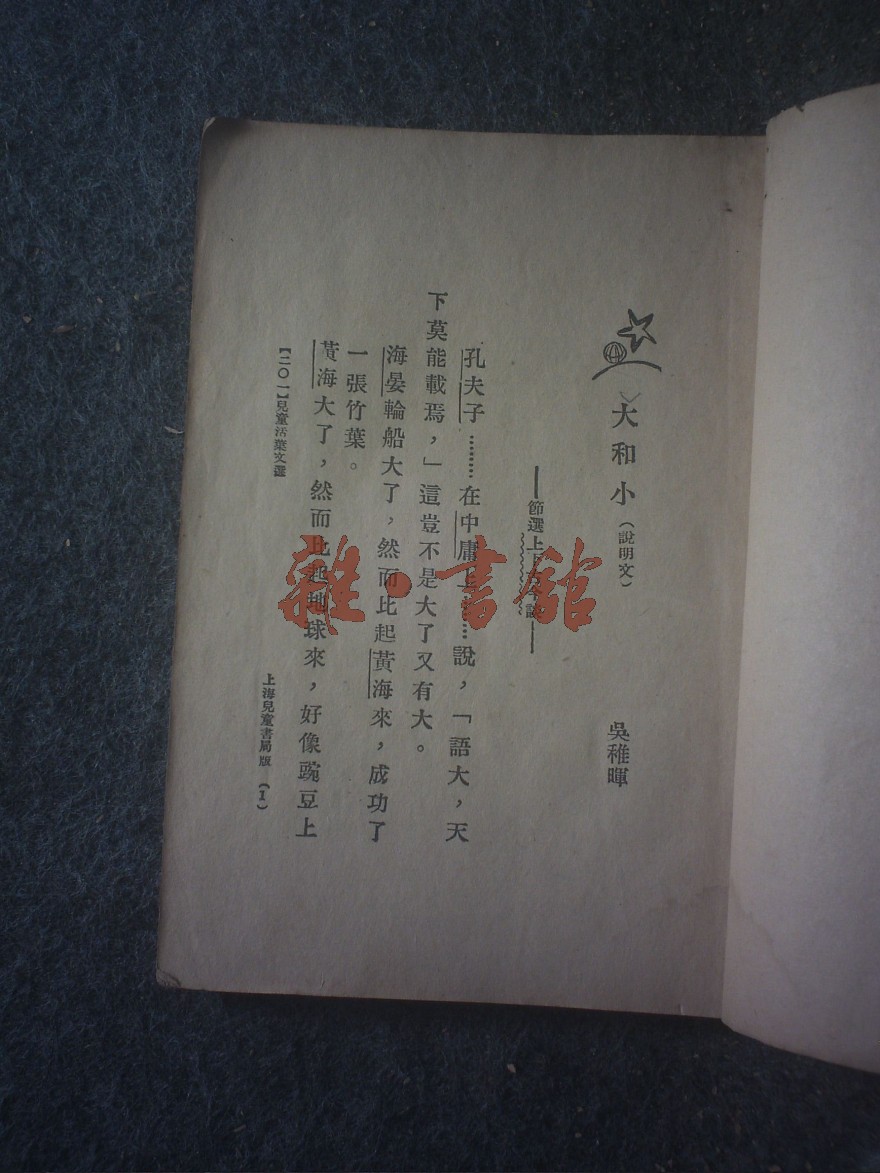 大和小(說明文)
吳稚暉
——節選上下古今談——
孔夫子………在中庸上……說,「語大,天
下莫能載焉,」這豈不是大了又有大。
海晏輪船大了,然而比起黃海來,成功了
一張竹葉。
黃海大了,然而比起地球來,好像豌豆上
【二〇一】兒童活葉文選
上海兒童書局版 (1)
雜·書館